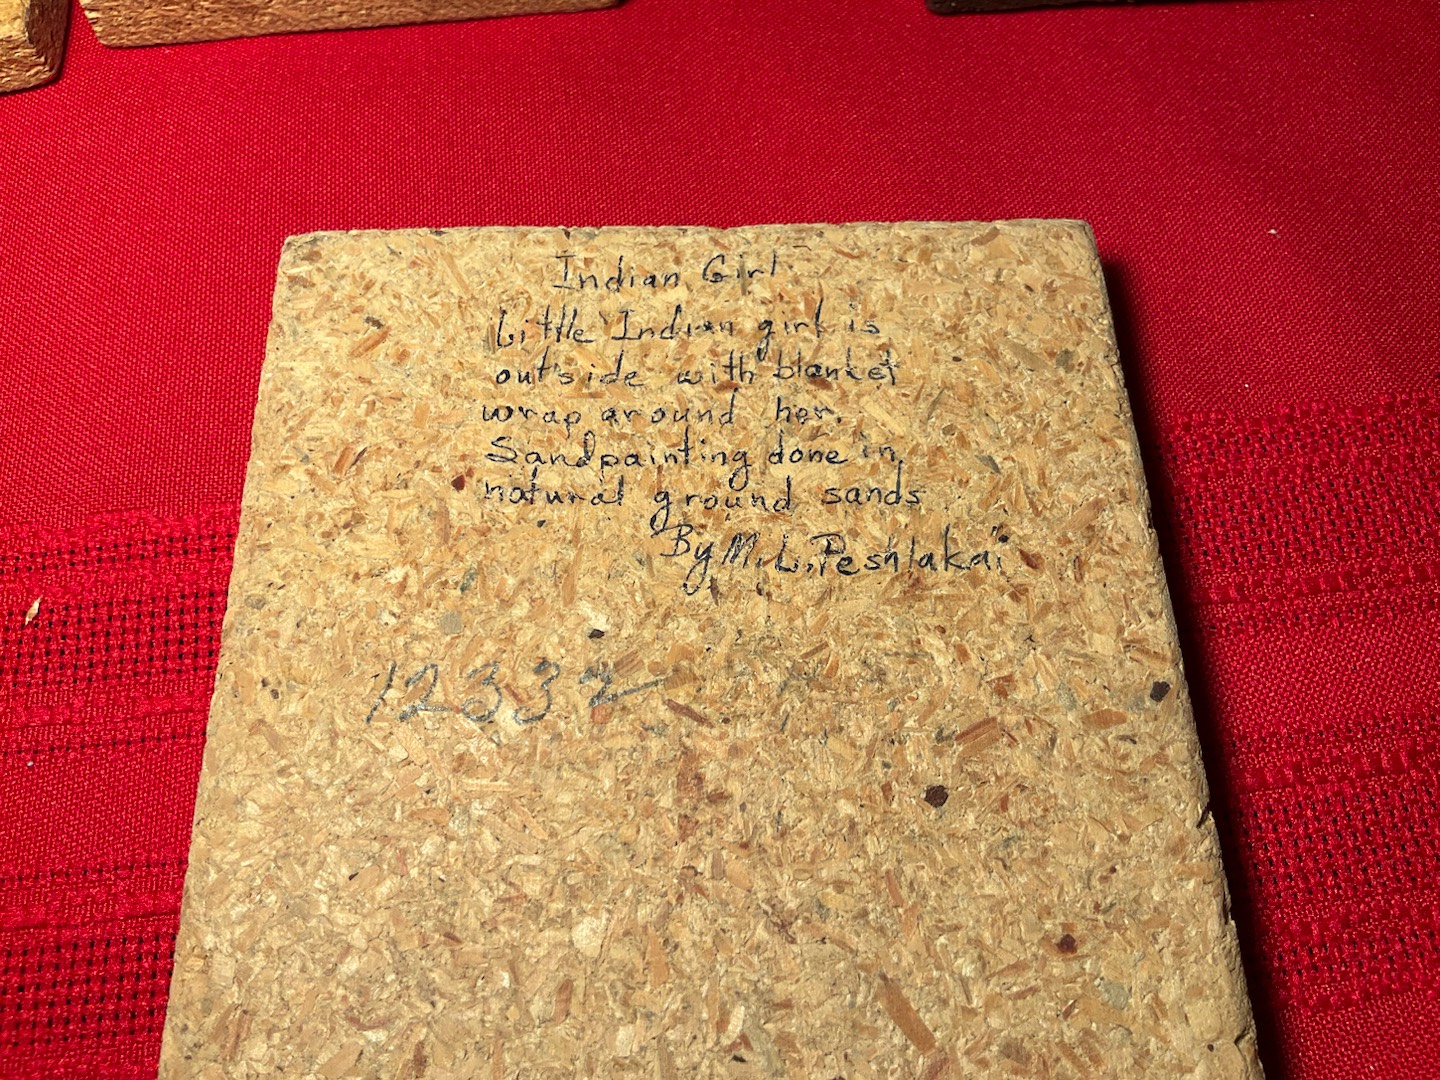 Indian Girl
Little Indian girl is
outside with blanket
wrap around her.
Sandpainting done in
natural ground sands
By M.L.Peshlakai
12332